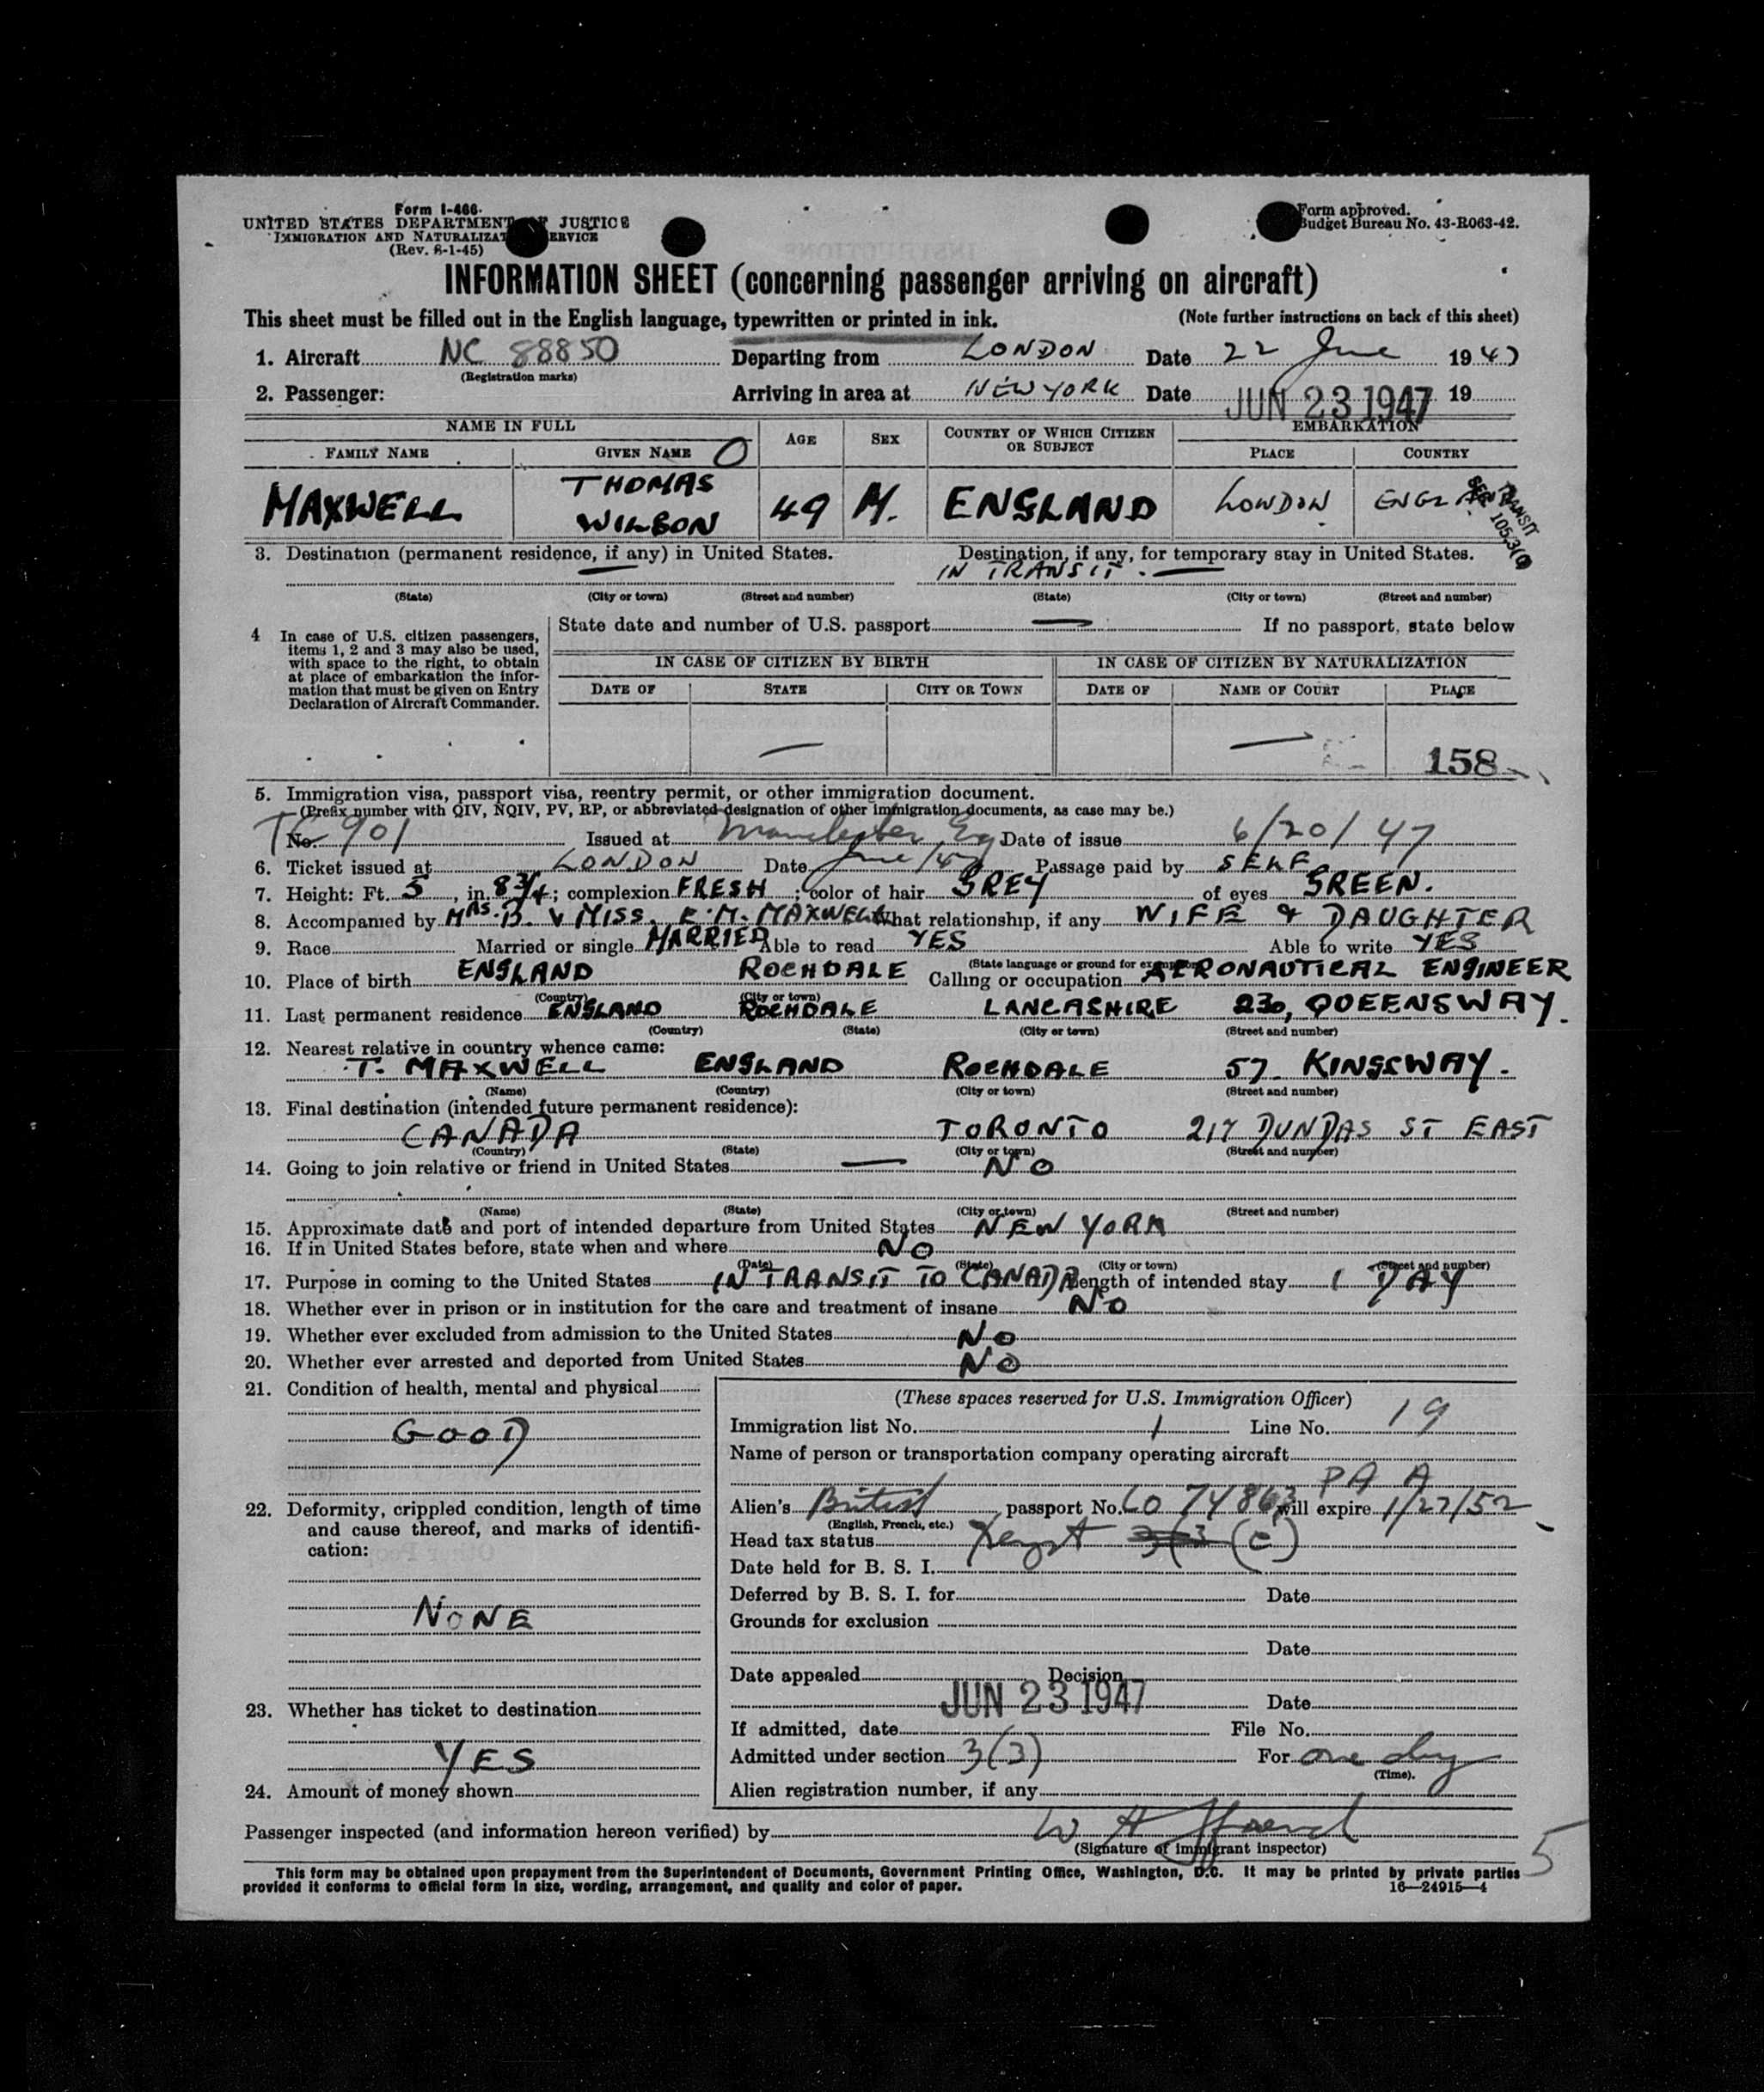 Form I-466
UNITED STATES DEPARTMENT OF JUSTICE
IMMIGRATION AND NATURALIZATION SERVICE
(Rev. 8-1-45)
Form approved.
Budget Bureau No. 43-R063-42.
INFORMATION SHEET (concerning passenger arriving on aircraft)
This sheet must be filled out in the English language, typewritten or printed in ink. (Note further instructions on back of this sheet)
1. Aircraft NC 88850 Departing from LONDON Date 22 June 1947
(Registration marks)
2. Passenger: Arriving in area at NEW YORK Date JUN 23 1947 19
NAME IN FULL AGE SEX COUNTRY OF WHICH CITIZEN OR SUBJECT EMBARKATION
FAMILY NAME GIVEN NAME PLACE COUNTRY
MAXWELL THOMAS WILSON 49 M. ENGLAND LONDON ENGL
TRANSIT
3. Destination (permanent residence, if any) in United States. Destination, if any, for temporary stay in United States.
— IN TRANSIT. —
(State) (City or town) (Street and number) (State) (City or town) (Street and number)
4 In case of U.S. citizen passengers,
items 1, 2 and 3 may also be used,
with space to the right, to obtain
at place of embarkation the infor-
mation that must be given on Entry
Declaration of Aircraft Commander.
State date and number of U.S. passport — If no passport, state below
IN CASE OF CITIZEN BY BIRTH IN CASE OF CITIZEN BY NATURALIZATION
DATE OF STATE CITY OR TOWN DATE OF NAME OF COURT PLACE
— — 158
5. Immigration visa, passport visa, reentry permit, or other immigration document.
(Prefix number with QIV, NQIV, PV, RP, or abbreviated designation of other immigration documents, as case may be.)
No. 901 Issued at Manchester, Eng Date of issue 6/20/47
6. Ticket issued at LONDON Date June/47 Passage paid by SELF
7. Height: Ft. 5, in. 8 3/4; complexion FRESH; color of hair GREY of eyes GREEN.
8. Accompanied by MRS. B. & MISS. K. M. MAXWELL What relationship, if any WIFE & DAUGHTER
9. Race Married or single MARRIED Able to read YES Able to write YES
(State language or ground for exemption)
10. Place of birth ENGLAND ROCHDALE Calling or occupation AERONAUTICAL ENGINEER
(Country) (City or town)
11. Last permanent residence ENGLAND ROCHDALE LANCASHIRE 230, QUEENSWAY.
(Country) (State) (City or town) (Street and number)
12. Nearest relative in country whence came:
T. MAXWELL ENGLAND ROCHDALE 57 KINGSWAY.
(Name) (Country) (City or town) (Street and number)
13. Final destination (intended future permanent residence):
CANADA TORONTO 217 DUNDAS ST EAST
(Country) (State) (City or town) (Street and number)
14. Going to join relative or friend in United States — NO
(Name) (State) (City or town) (Street and number)
15. Approximate date and port of intended departure from United States NEW YORK
16. If in United States before, state when and where NO
(Date) (State) (City or town) (Street and number)
17. Purpose in coming to the United States IN TRANSIT TO CANADA Length of intended stay 1 DAY
18. Whether ever in prison or in institution for the care and treatment of insane NO
19. Whether ever excluded from admission to the United States NO
20. Whether ever arrested and deported from United States NO
21. Condition of health, mental and physical
GOOD
22. Deformity, crippled condition, length of time
and cause thereof, and marks of identifi-
cation:
NONE
23. Whether has ticket to destination
YES
24. Amount of money shown
(These spaces reserved for U.S. Immigration Officer)
Immigration list No. 1 Line No. 19
Name of person or transportation company operating aircraft
PAA
Alien's British passport No. LO 74863 will expire 1/27/52
(English, French, etc.)
Head tax status 3(3 (c)
Date held for B. S. I.
Deferred by B. S. I. for Date
Grounds for exclusion
Date
Date appealed Decision
JUN 23 1947 Date
If admitted, date File No.
Admitted under section 3(3) For one day
(Time).
Alien registration number, if any
Passenger inspected (and information hereon verified) by W H
(Signature of immigrant inspector)
5
This form may be obtained upon prepayment from the Superintendent of Documents, Government Printing Office, Washington, D.C. It may be printed by private parties
provided it conforms to official form in size, wording, arrangement, and quality and color of paper. 16—24915—4